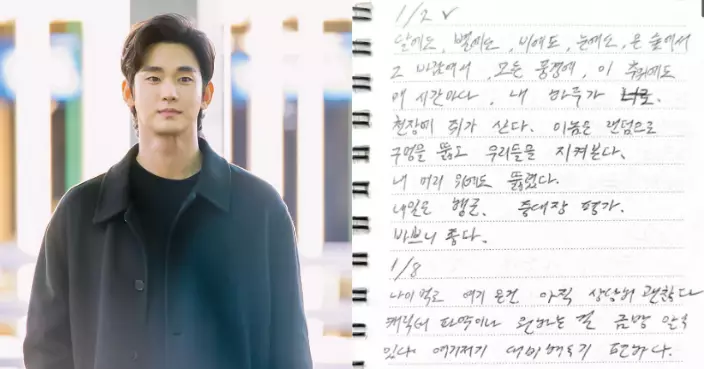 1/2 ✓
달에도, 별에도, 비에도, 눈에도, 온 숲에서
그 바람에서, 모든 풍경에, 이 추위에도
매 시간마다, 내 하루가 너로.
천장에 쥐가 산다. 이놈은 랜덤으로
구멍을 뚫고 우리들을 지켜본다.
내 머리 위에도 뚫렸다.
내일은 행군. 중대장 평가.
바쁘니 좋다.
1/8
나이 먹고 여기 온건 아직 상당히 괜찮다
캐릭터 파악이나 원하는 걸 금방 알 수
있다. 여기저기 대비해두기 편하다.